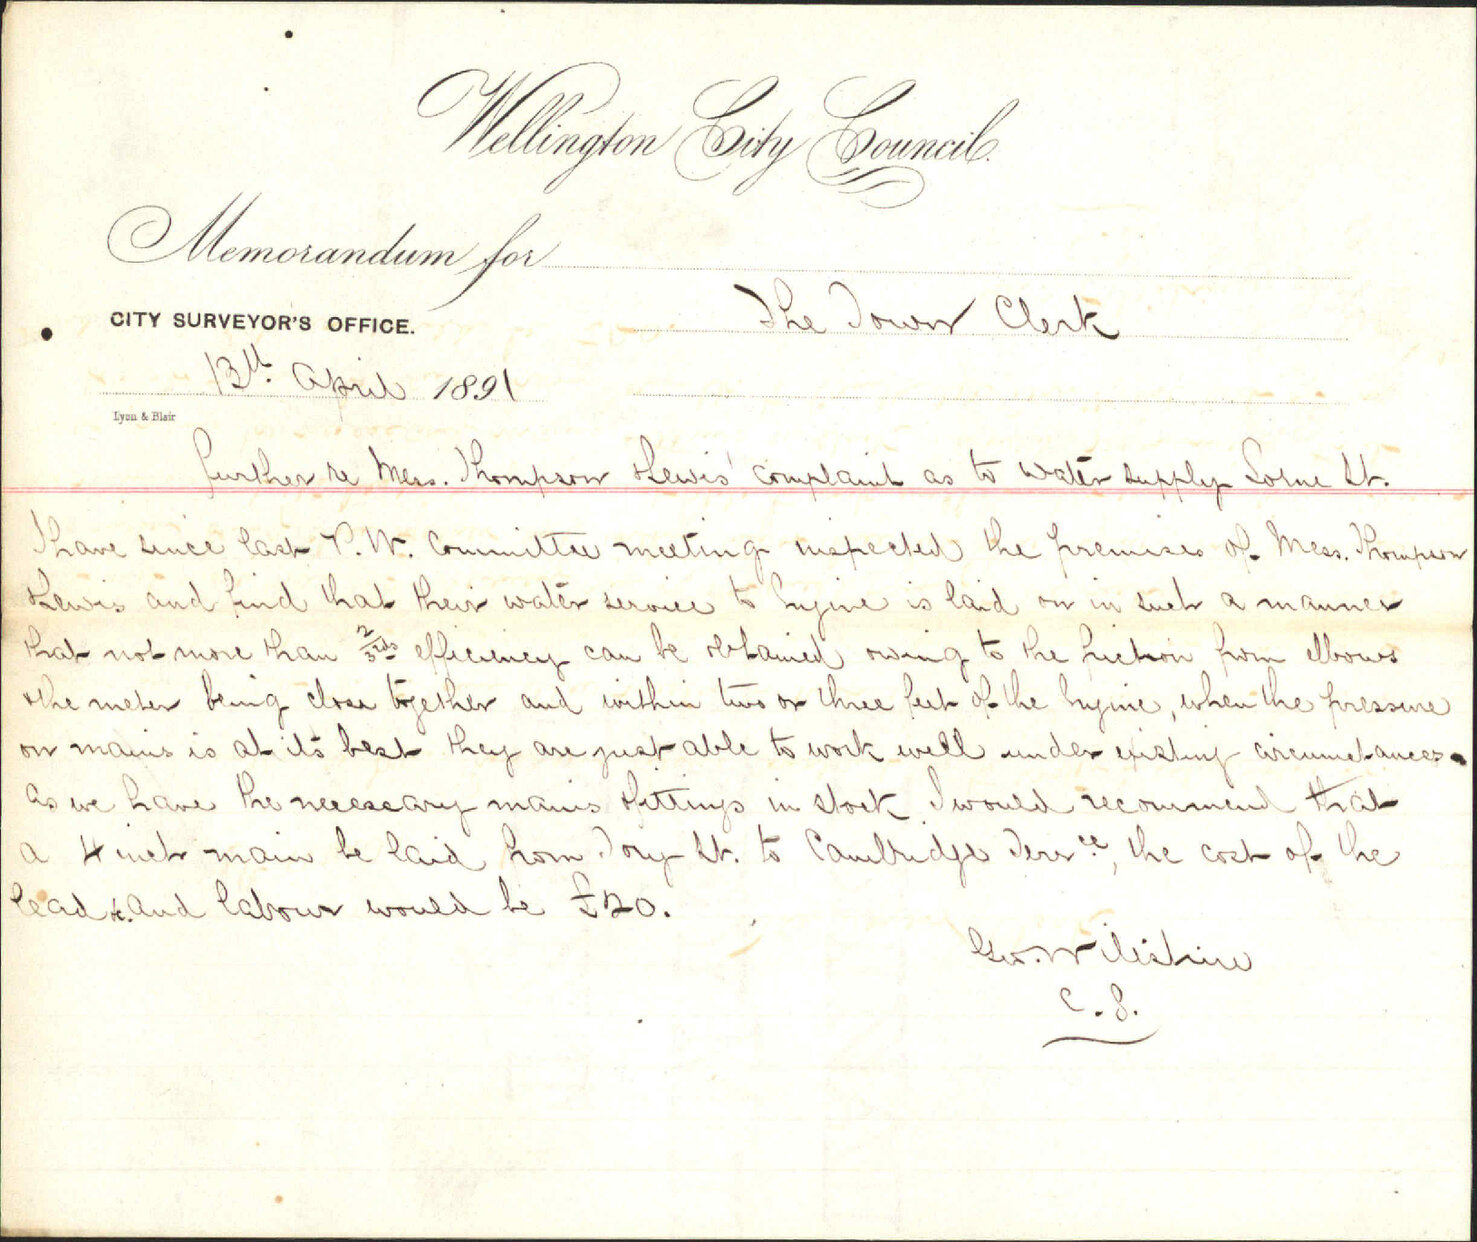 Wellington City Council.
Memorandum for
The Town Clerk
CITY SURVEYOR'S OFFICE.
13th. April 1891
Lyon & Blair
Further re Mess. Thompson & Lewis' complaint as to water supply Lorne St.
I have since last P.W. Committee meeting inspected the premises of Mess. Thompson
& Lewis and find that their water service to Engine is laid on in such a manner
that not more than 2/3rds efficiency can be obtained owing to the friction from elbows
& the meter being close together and within two or three feet of the Engine, when the pressure
on mains is at its best they are just able to work well under existing circumstances.
As we have the necessary mains & fittings in stock I would recommend that
a 4 inch main be laid from Tory St. to Cambridge Terrce, the cost of the
lead &c. and labour would be £20.
Geo. Wiltshire
C.S.